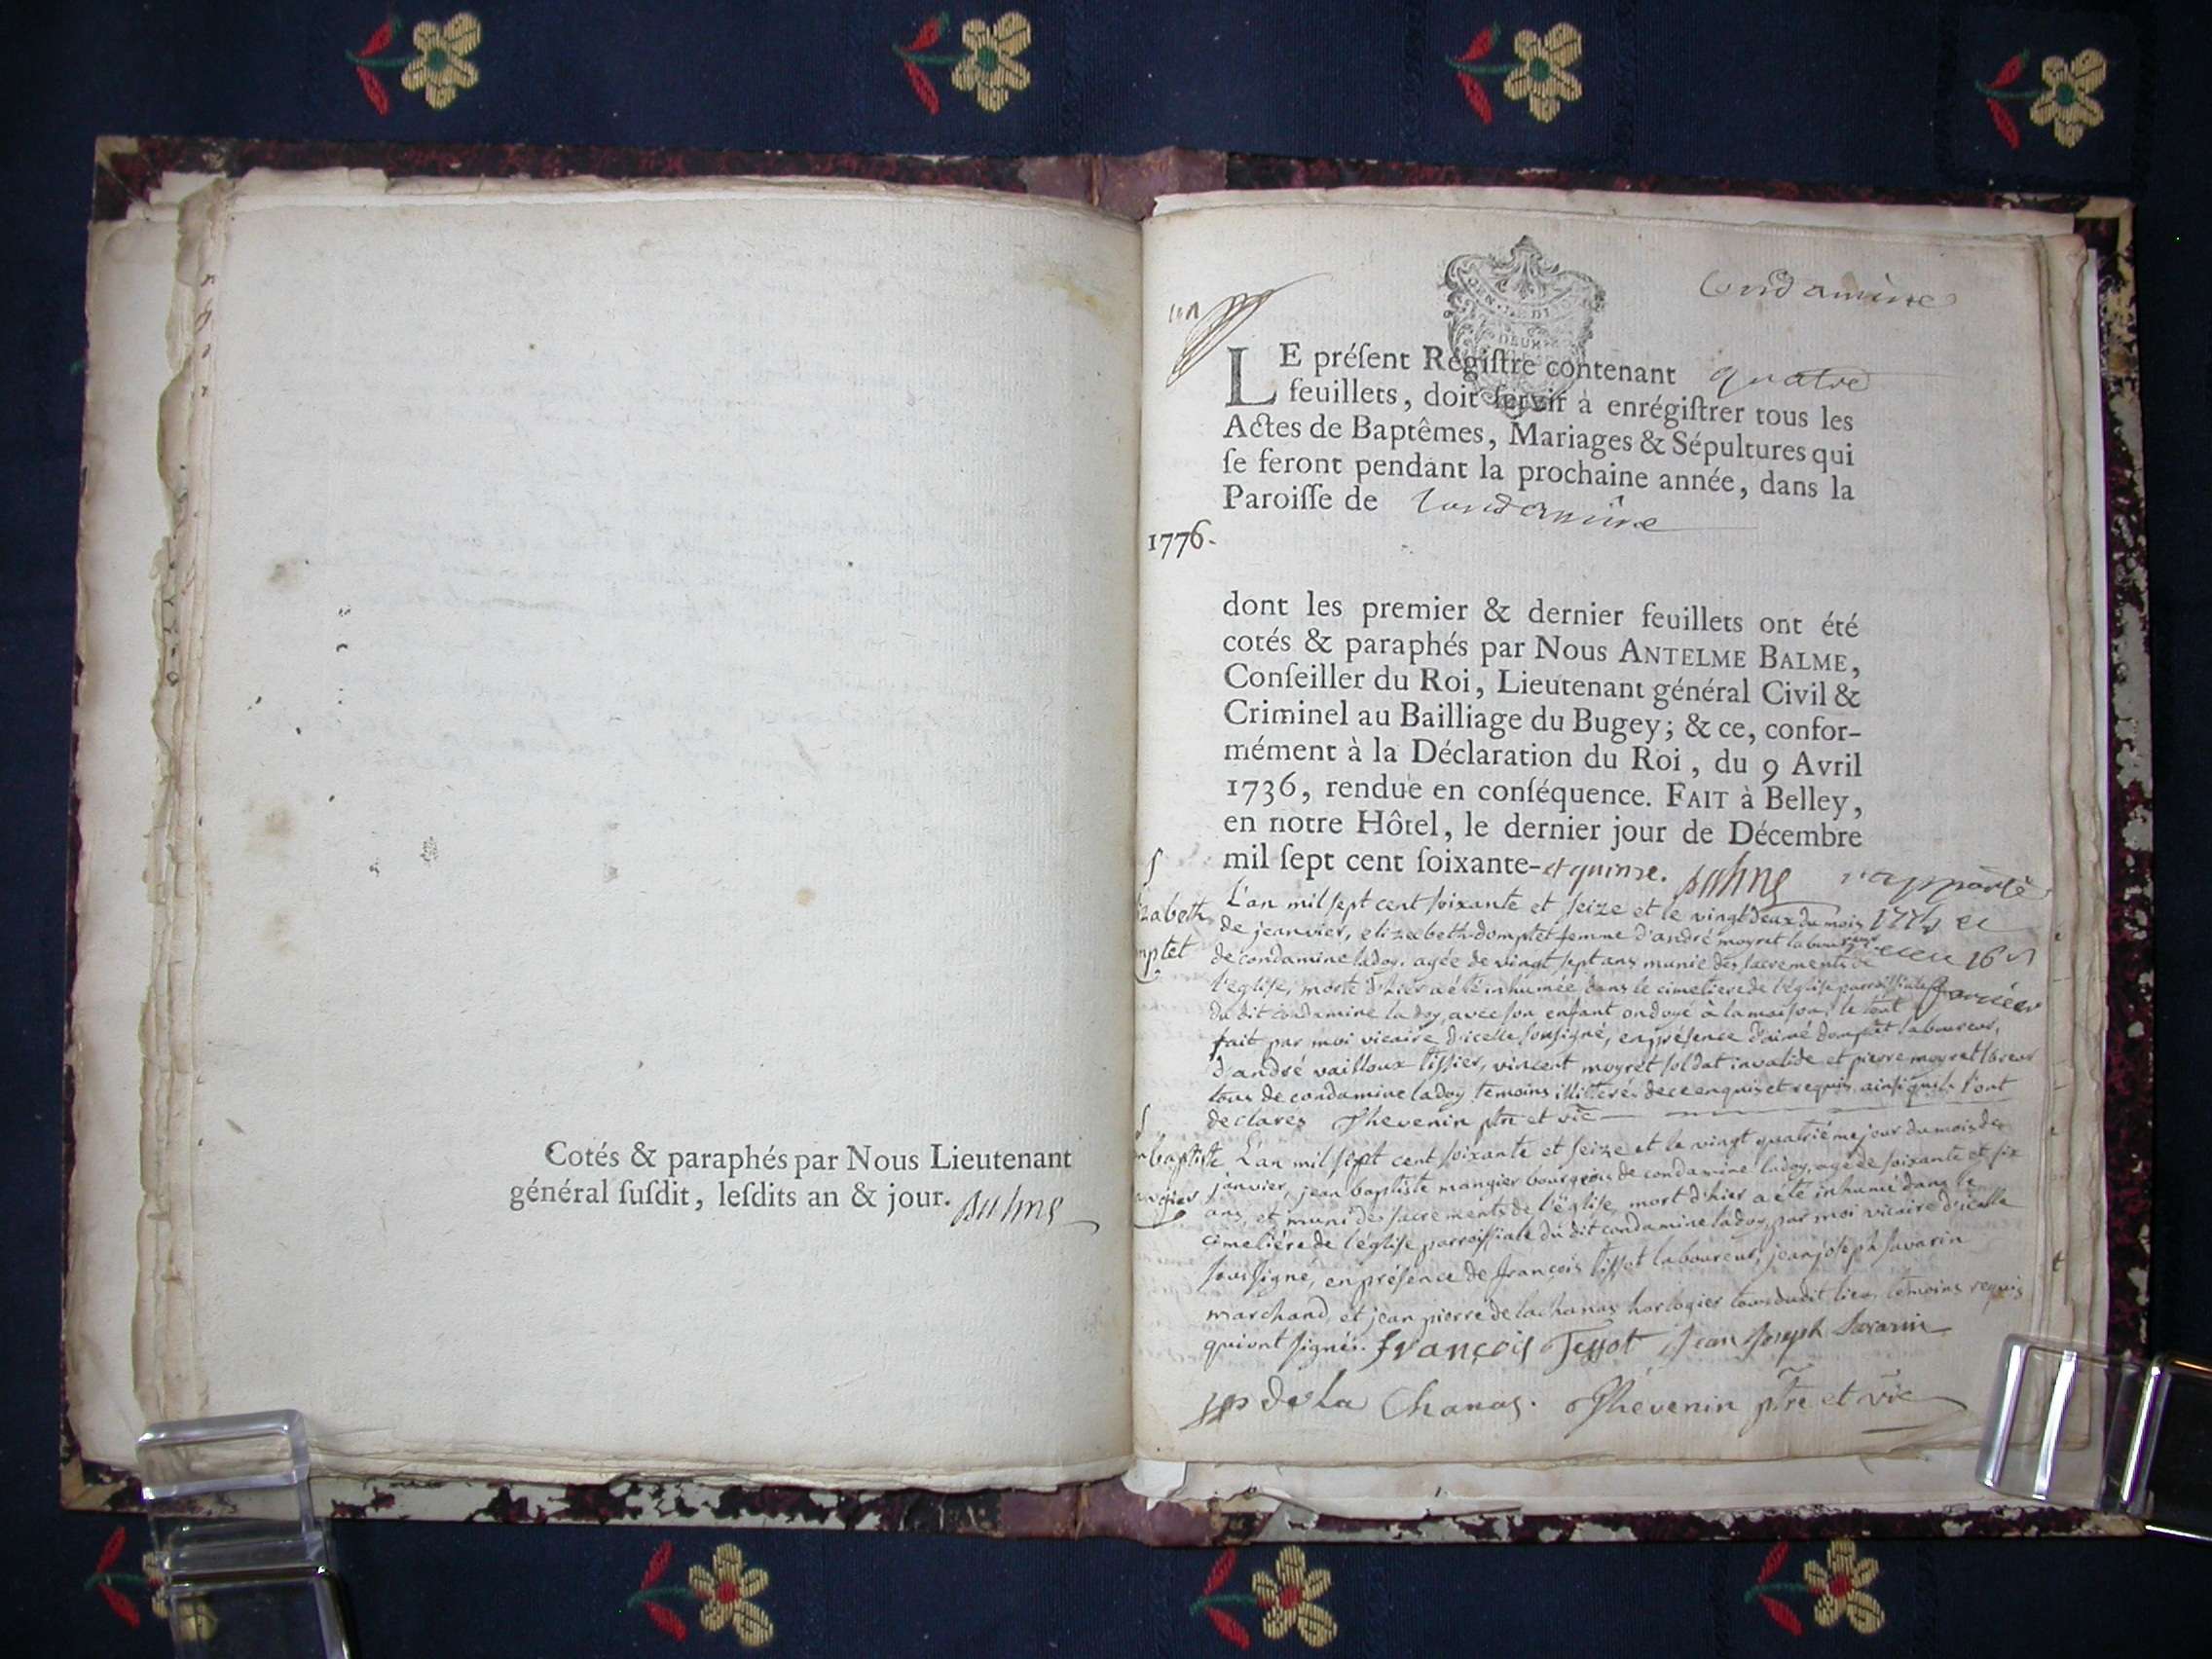 Cotés & paraphés par Nous Lieutenant
général ſuſdit, leſdits an & jour. Balme
Condamine
un
GEN. DE DI
DEUX
LE préſent Régiſtre contenant quatre
feuillets, doit ſervir à enrégiſtrer tous les
Actes de Baptêmes, Mariages & Sépultures qui
ſe feront pendant la prochaine année, dans la
Paroiſſe de Condamine
1776.
dont les premier & dernier feuillets ont été
cotés & paraphés par Nous ANTELME BALME,
Conſeiller du Roi, Lieutenant général Civil &
Criminel au Bailliage du Bugey; & ce, confor-
mément à la Déclaration du Roi, du 9 Avril
1736, rendue en conſéquence. FAIT à Belley,
en notre Hôtel, le dernier jour de Décembre
mil ſept cent ſoixante-et quinze. Balme rapporté
S
izabeth
mptet
L'an mil sept cent soixante et seize et le vingt deux du mois
de jeanvier, elizabeth domptet femme d'andré moyret laboureur
de condamine ladoy, agée de vingt sept ans munie des sacrements de
l'eglise, morte d'hier a été inhumée dans le cimetiere de l'église parroissiale
du dit condamine ladoy, avec son enfant ondoyé à la maison, le tout
fait par moi vicaire d'icelle soussigné, en présence d'aimé domptet laboureur,
d'andré vailloux tissier, vincent moyret soldat invalide et pierre moyret
tous de condamine ladoy temoins illiterés de ce enquis et requis ainsi qu'ils l'ont
declarés Thevenin ptre et vic
S
n baptiste
angier
L'an mil sept cent soixante et seize et le vingt quatriéme jour du mois de
janvier, jean baptiste mangier bourgeois de condamine ladoy, agé de soixante et six
ans, et muni des sacrements de l'église, mort d'hier a été inhumé dans le
cimetiére de l'église parroissiale du dit condamine ladoy, par moi vicaire d'icelle
soussigné, en présence de françois tissot laboureur, jean joseph savarin
marchand, et jean pierre de la chanas horlogier tous dudit lieu, temoins requis
qui ont signés. françois Tissot Jean Joseph Savarin
jp De La Chanas. Thevenin ptre et vic